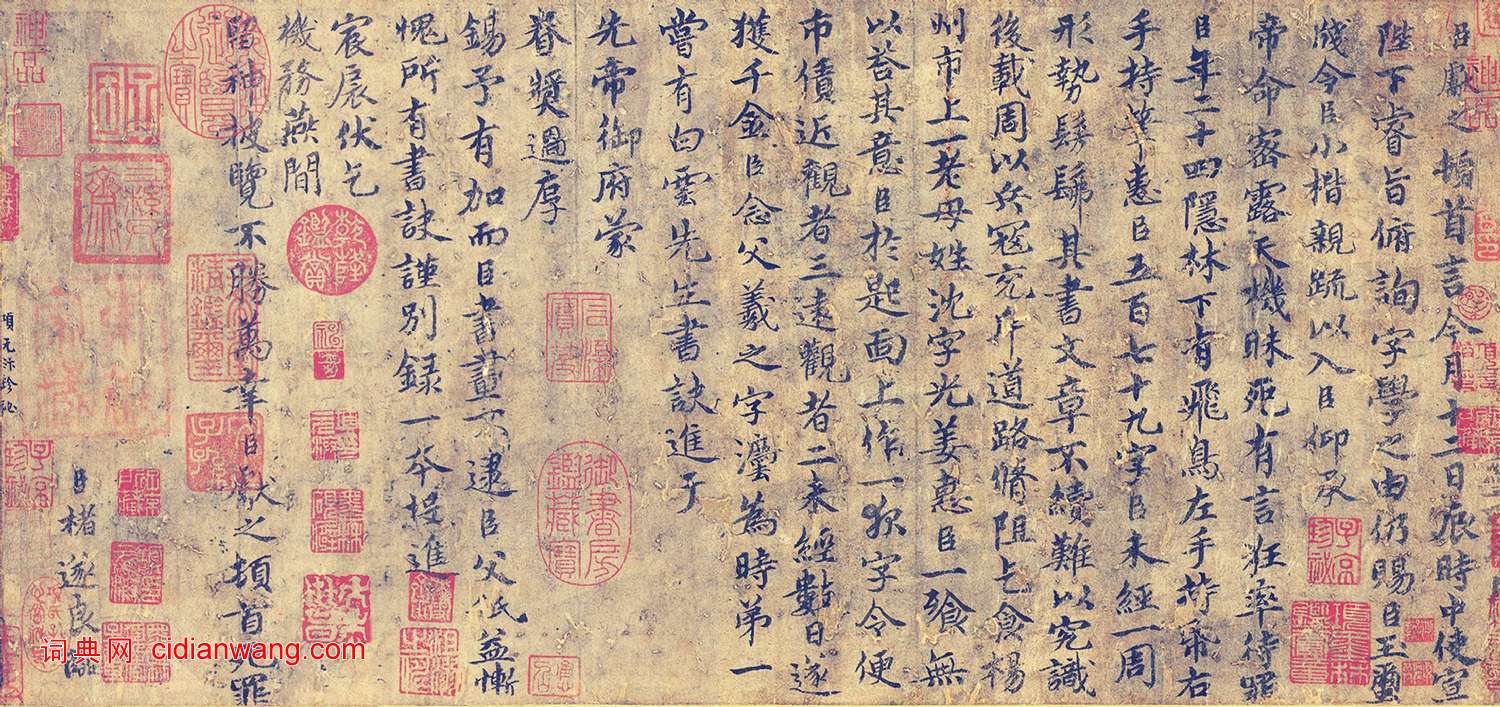 臣獻之稽首言今月十二日辰時中使宣
陛下睿旨俯詢字學之由仍賜臣玉璽
牋令臣小楷親疏以入臣仰承
帝命密露天機昧死有言狂率待罪
臣年二十四隱林下有飛鳥左手持帋右
手持筆惠臣五百七十九字臣未經一周
形勢髣髴其書文章不續難以究識
後載周以兵寇充斥道路脩阻乞食揚
州市上一老母姓沈字光姜惠臣一飡無
以荅其意臣於匙面上作一夜字令便
市債近觀者三遠觀者二未經數日遂
獲千金臣念父羲之字法為時第一
嘗有白雲先生書訣進于
先帝御府蒙
眷獎過厚
錫予有加而臣書畫不逮臣父祇益慚
愧所有書訣謹別錄一本投進
宸扆伏乞
機務燕閒
留神披覽不勝萬幸臣獻之頓首死罪
臣褚遂良臨
項元汴珍秘
神品
乾隆鑑賞
三希堂
御書房鑑藏寶
子京珍秘
词典网 cidianwang.com